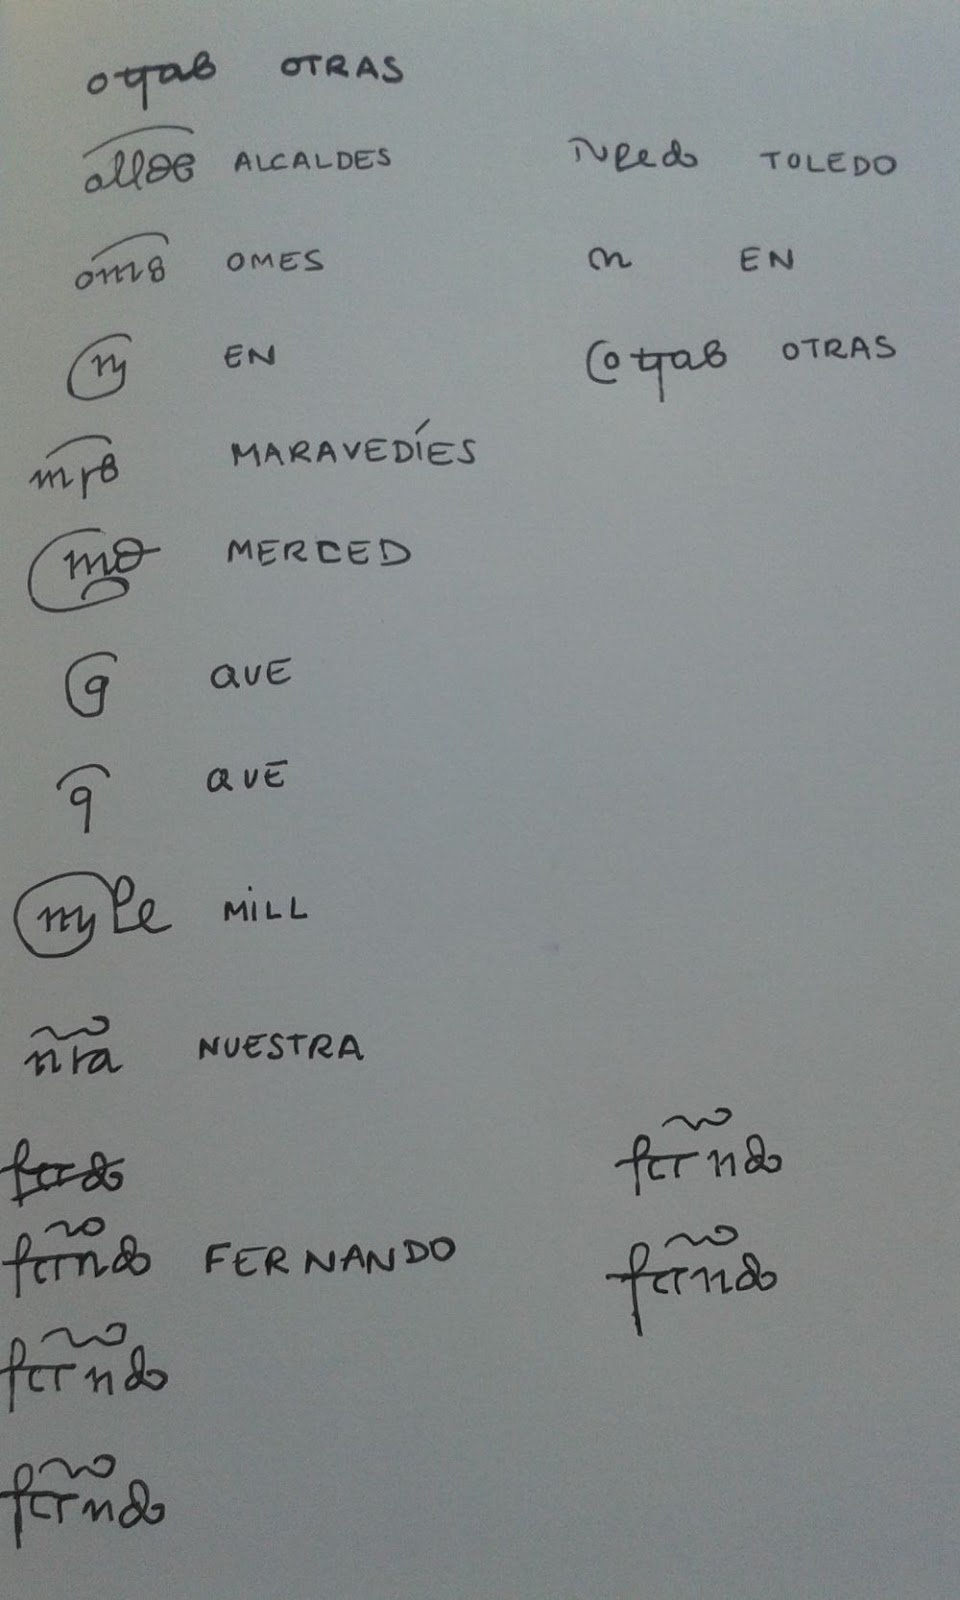 otras OTRAS
allds ALCALDES
Toledo TOLEDO
oms OMES
en EN
en EN
otras OTRAS
mrs MARAVEDÍES
md MERCED
q QUE
q QUE
myll MILL
nra NUESTRA
ferndo
ferndo FERNANDO
ferndo
ferndo
ferndo